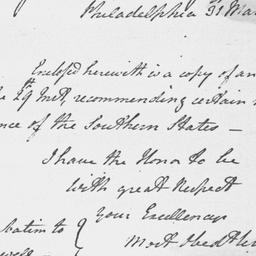 Philadelphia 31 Mar
Enclosed herewith is a copy of an
29th Inst, recommending certain
nce of the Southern States —
I have the Honor to be
with great Respect
your Excellencys
batim to
Most Obedt